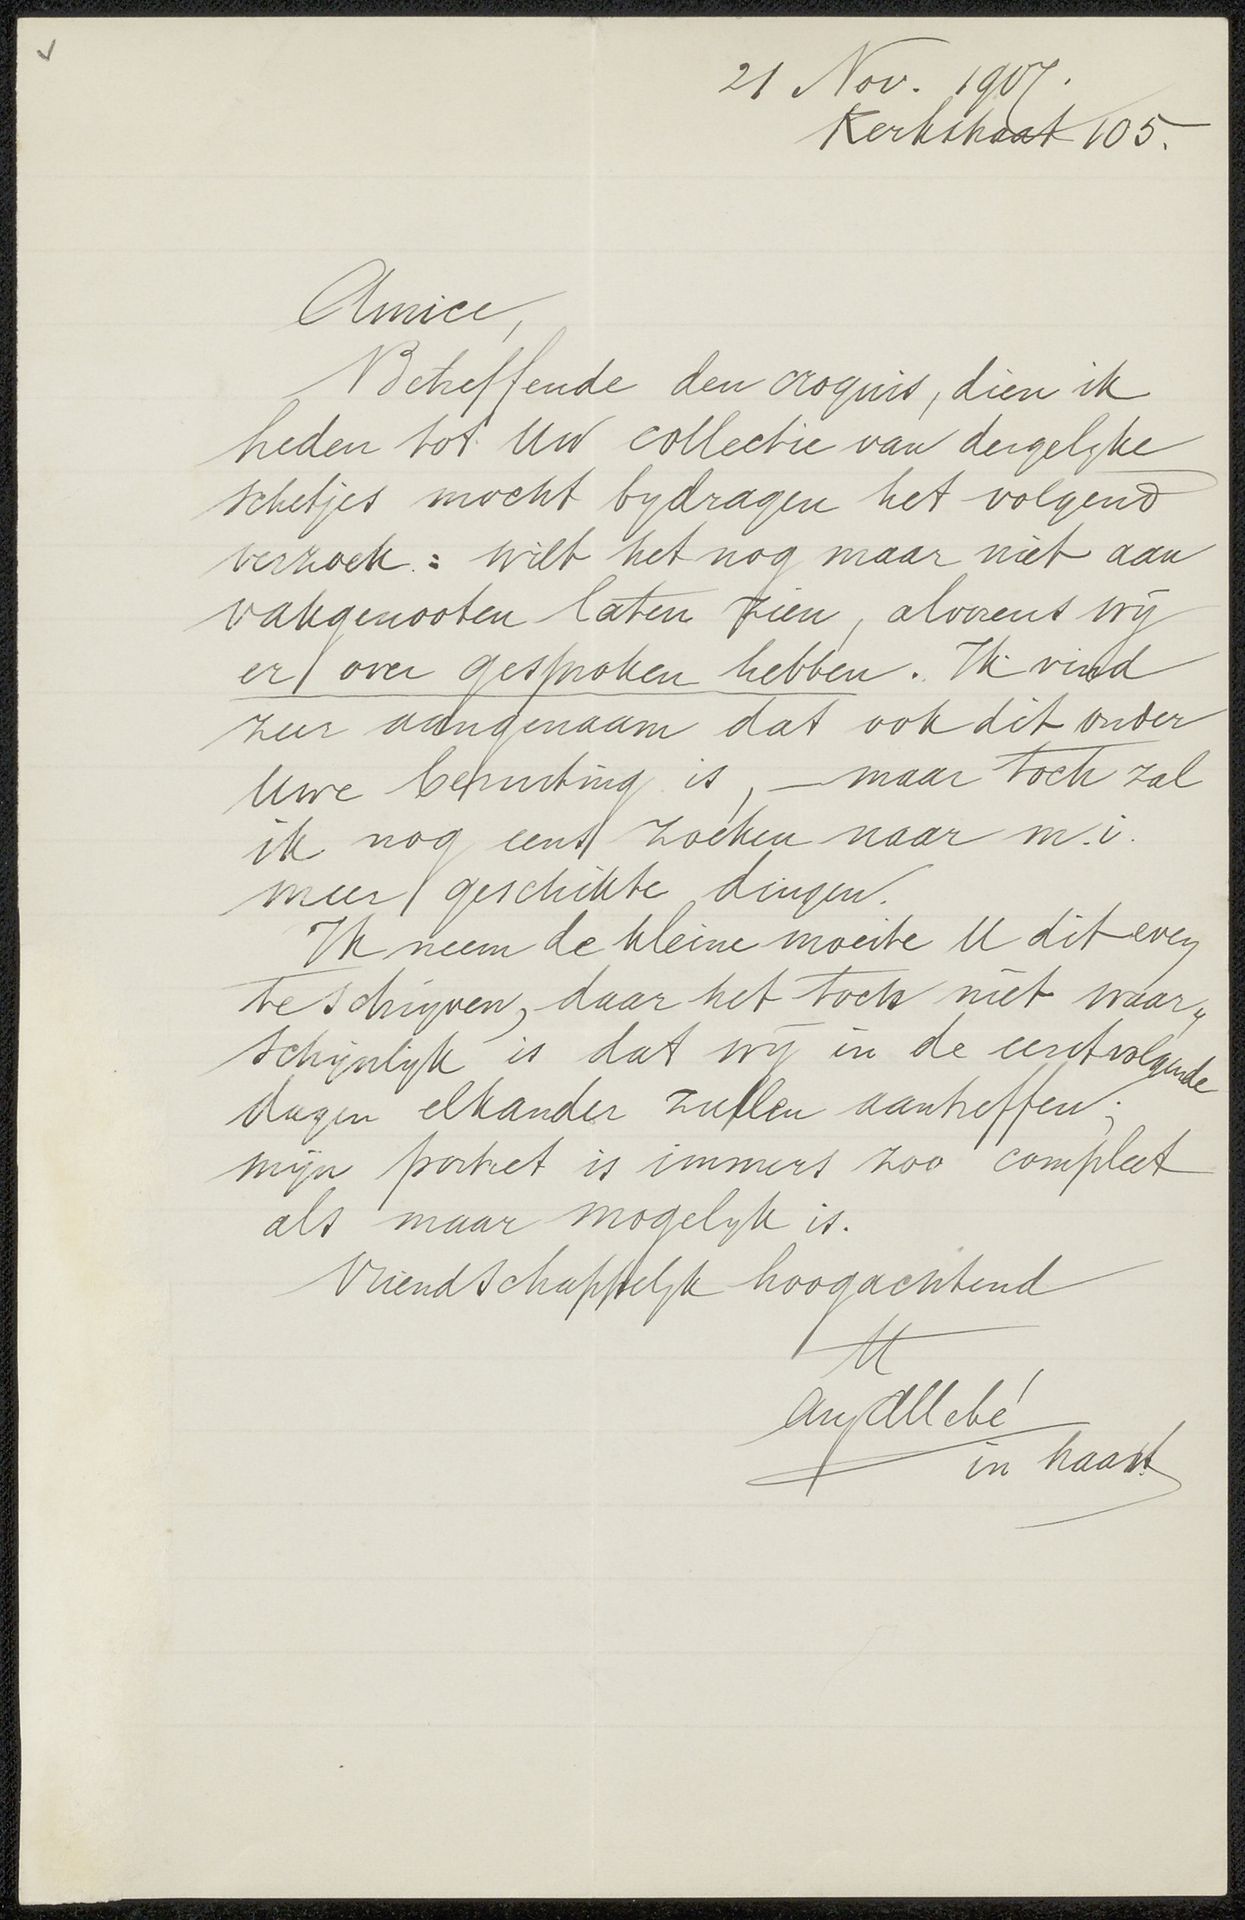 21 Nov. 1907.
Kerkstraat 105.
Amice,
Betreffende den croquis, dien ik
heden tot Uw collectie van dergelyke
schetsjes mocht bydragen het volgend
verzoek: wilt het nog maar niet aan
vakgenooten laten zien, alvorens wij
er over gesproken hebben. Ik vind
zeer aangenaam dat ook dit onder
Uwe berusting is, — maar toch zal
ik nog eens zoeken naar m.i.
meer geschikte dingen.
Ik neem de kleine moeite U dit even
te schryven, daar het toch niet waar„
schijnlijk is dat wij in de eerstvolgende
dagen elkander zullen aantreffen;
mijn portret is immers zoo compleet
als maar mogelyk is.
Vriendschappelyk hoogachtend
Aug Allebé
in haast